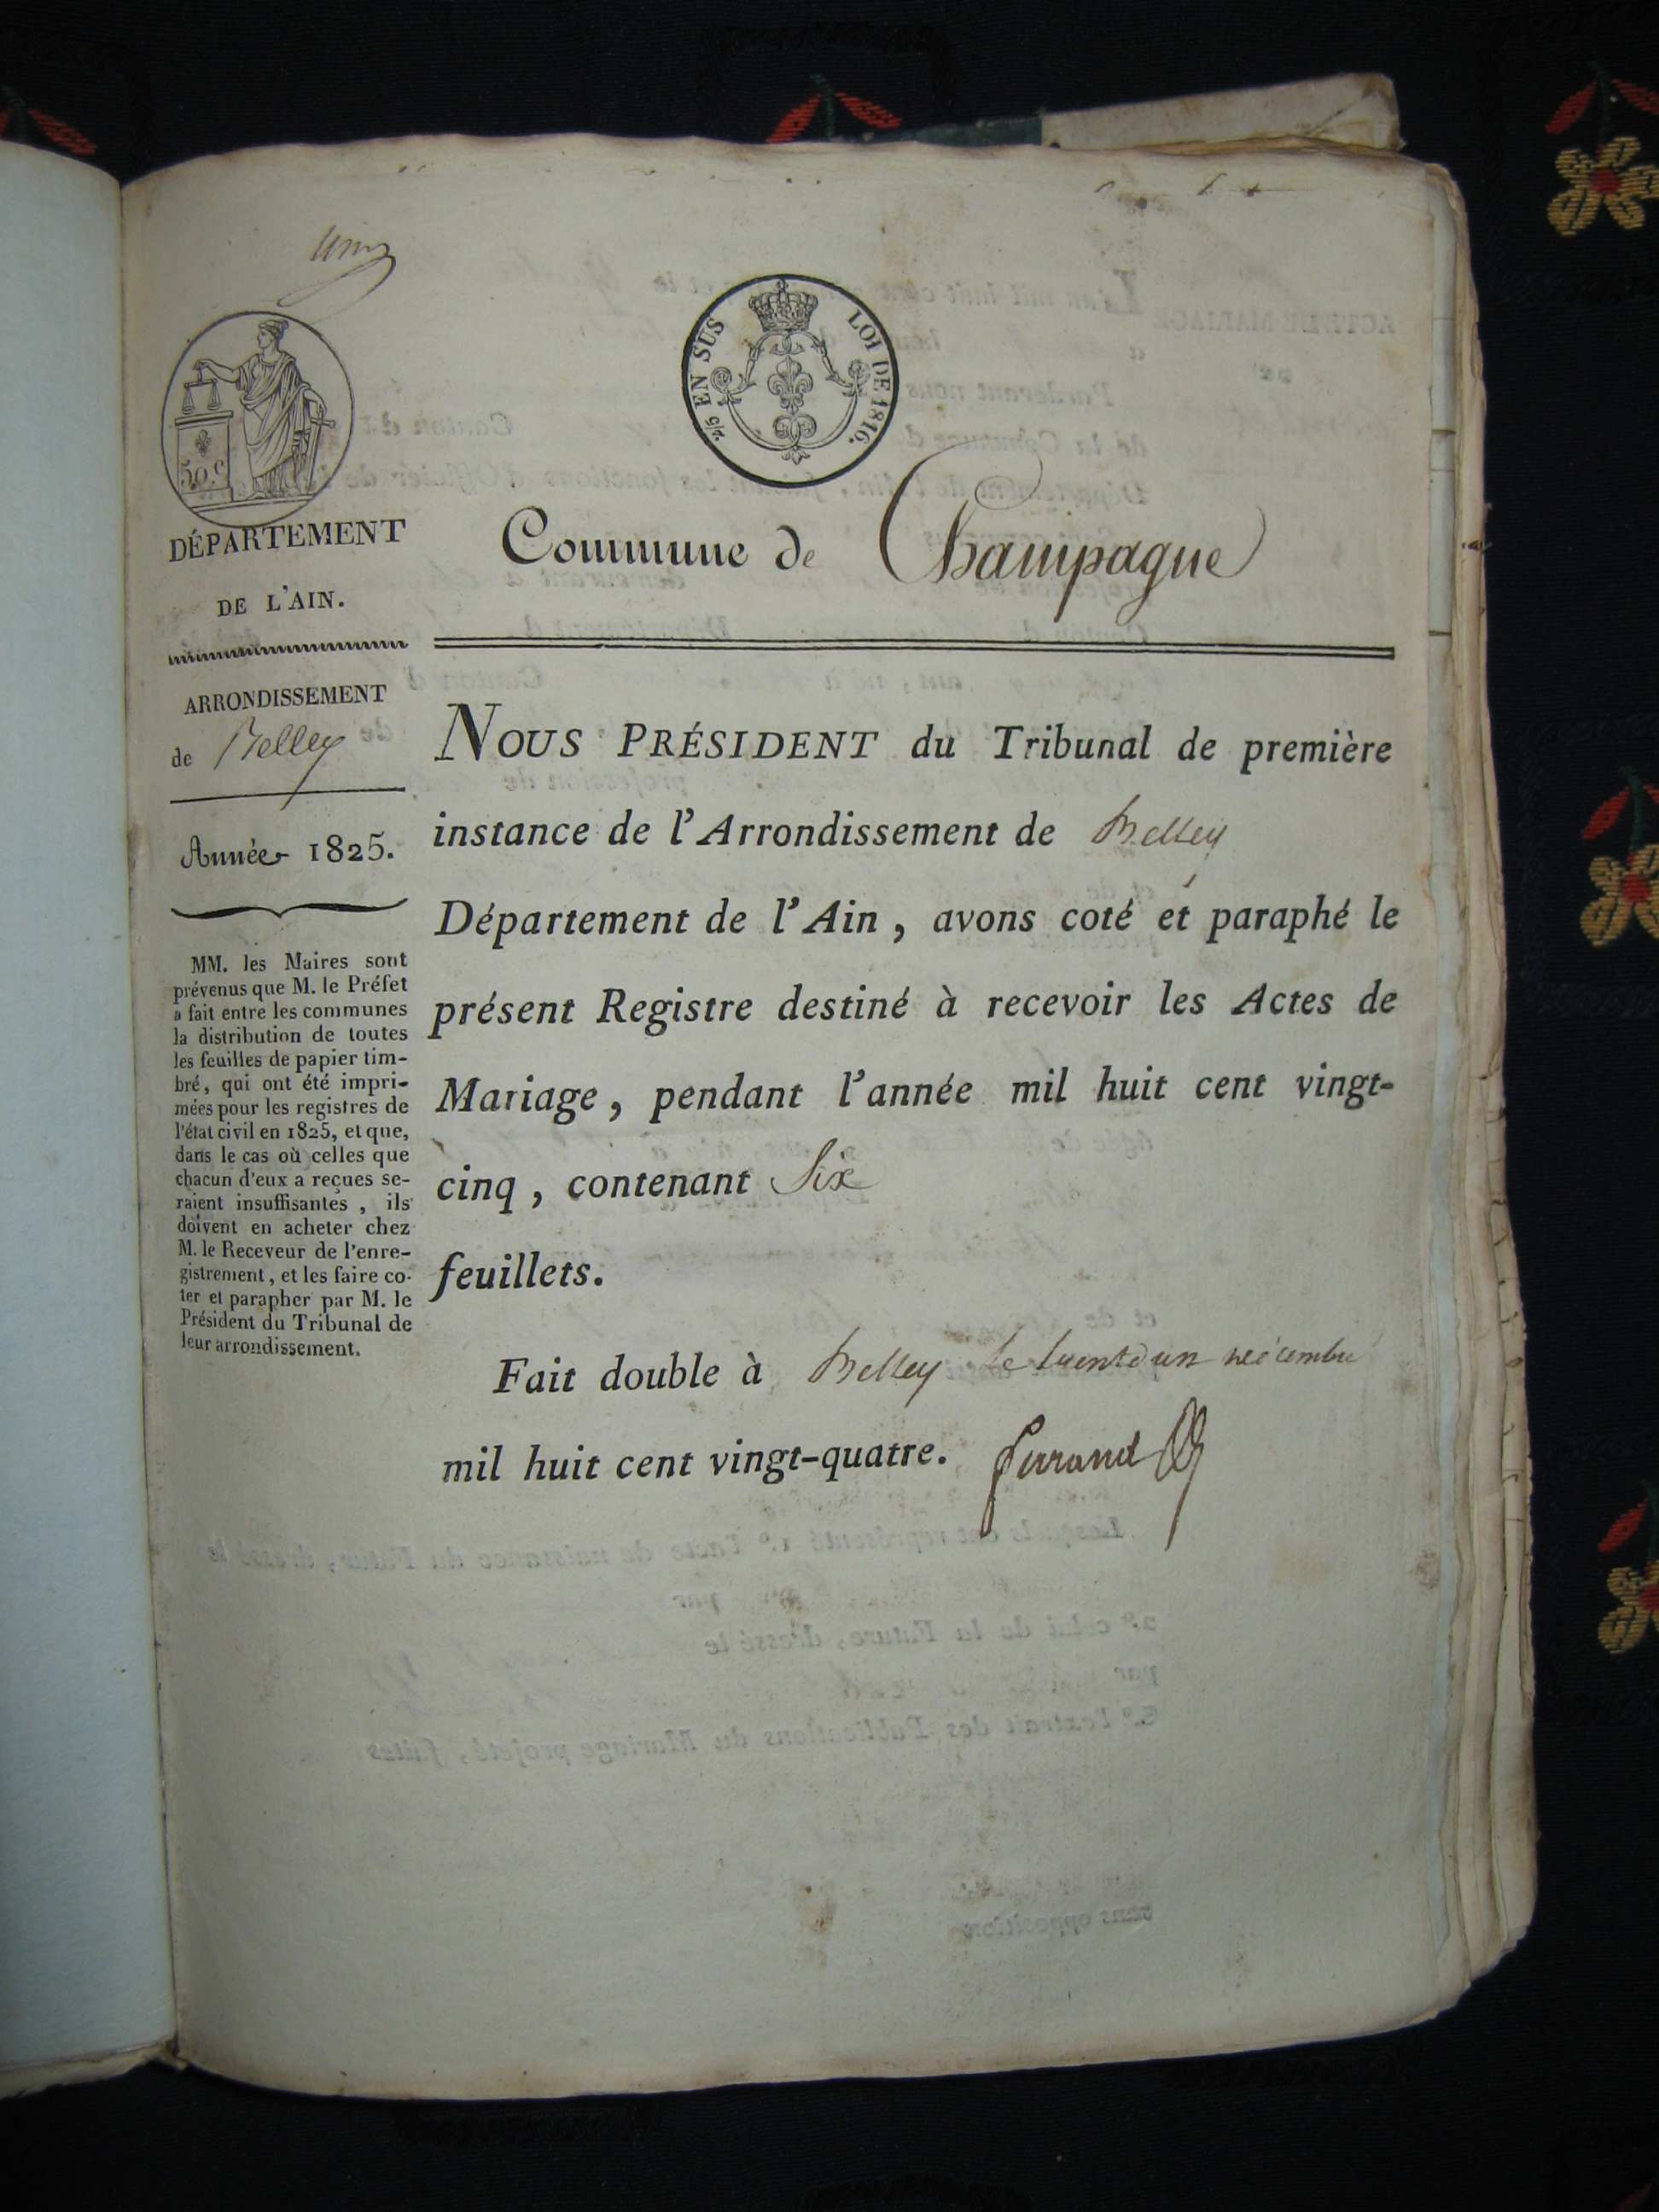 2/5 EN SUS LOI DE 1816.
50 c
DÉPARTEMENT
DE L'AIN.
ARRONDISSEMENT
de Belley
Année 1825.
MM. les Maires sont
prévenus que M. le Préfet
a fait entre les communes
la distribution de toutes
les feuilles de papier tim-
bré, qui ont été impri-
mées pour les registres de
l'état civil en 1825, et que,
dans le cas où celles que
chacun d'eux a reçues se-
raient insuffisantes, ils
doivent en acheter chez
M. le Receveur de l'enre-
gistrement, et les faire co-
ter et parapher par M. le
Président du Tribunal de
leur arrondissement.
Commune de Champagne
NOUS PRÉSIDENT du Tribunal de première
instance de l'Arrondissement de Belley
Département de l'Ain, avons coté et paraphé le
présent Registre destiné à recevoir les Actes de
Mariage, pendant l'année mil huit cent vingt-
cinq, contenant Six
feuillets.
Fait double à Belley le trente un décembre
mil huit cent vingt-quatre.